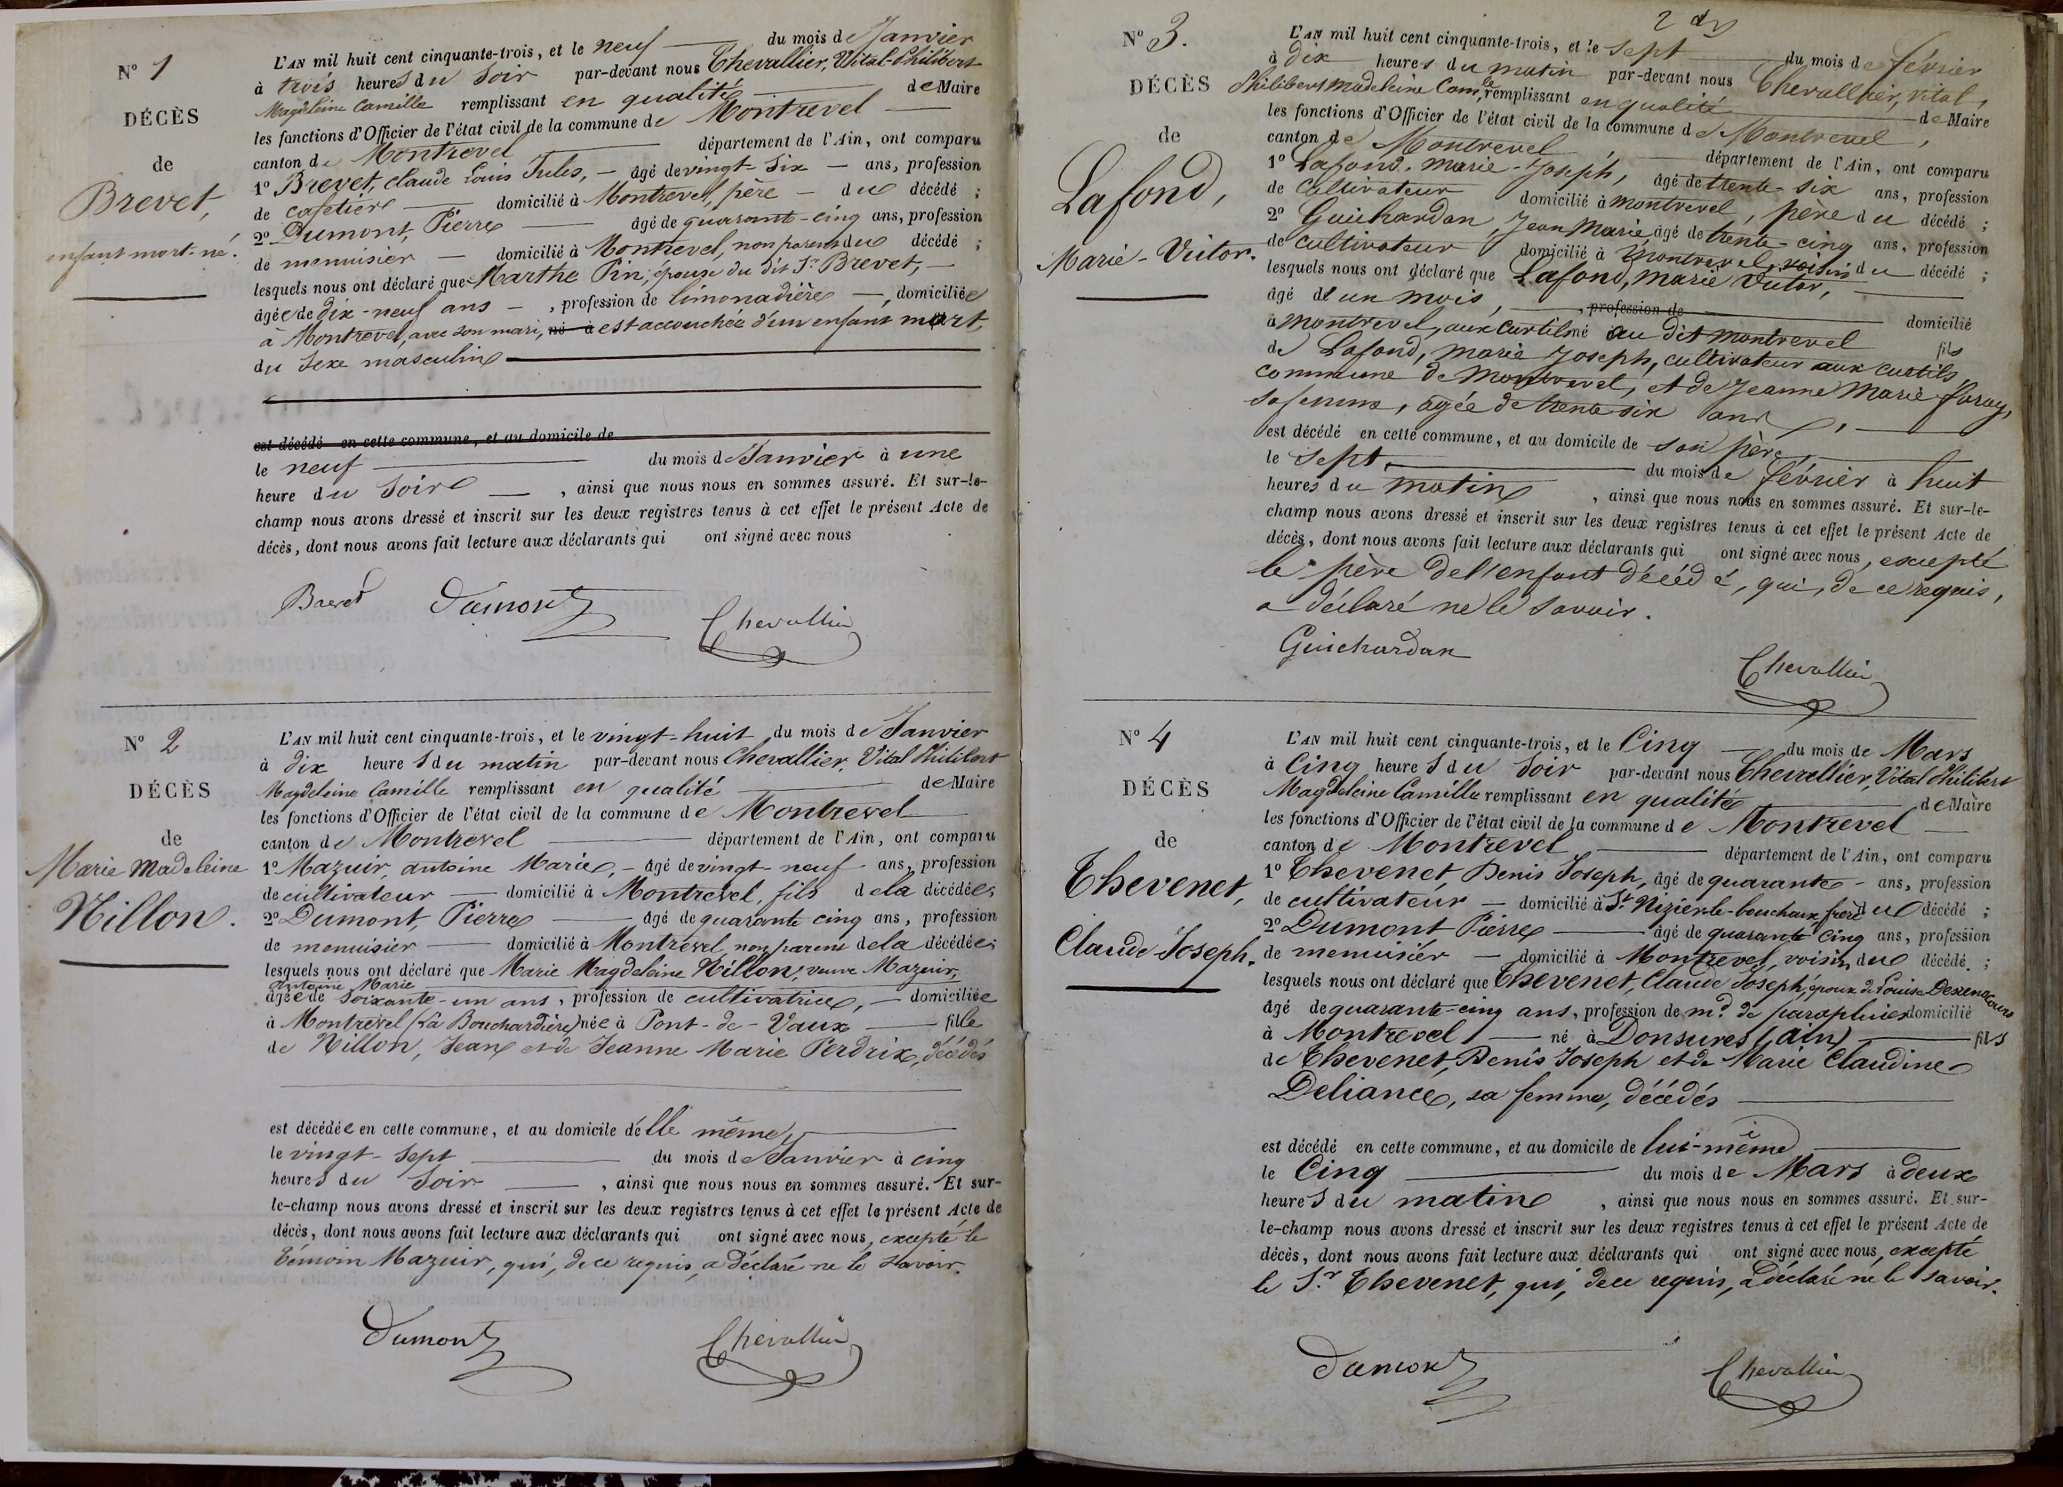 N° 1
DÉCÈS
de
Brevet,
enfant mort-né.
L'AN mil huit cent cinquante-trois, et le neuf du mois de Janvier
à trois heures du soir par-devant nous Chevallier, Vital-Philibert
Magdeleine Camille remplissant en qualité de Maire
les fonctions d'Officier de l'état civil de la commune de Montrevel
canton de Montrevel département de l'Ain, ont comparu
1° Brevet, Claude Louis Jules, — âgé de vingt-six — ans, profession
de cafetier domicilié à Montrevel, père — du décédé ;
2° Dumont, Pierre âgé de quarante-cinq ans, profession
de menuisier — domicilié à Montrevel, non parent du décédé ;
lesquels nous ont déclaré que Marthe Pin, épouse du dit Sr Brevet, —
âgée de dix-neuf ans — , profession de limonadière —, domiciliée
à Montrevel, avec son mari, né à est accouchée d'un enfant mort,
du sexe masculin
est décédé en cette commune, et au domicile de
le neuf du mois de Janvier à une
heure du soir — , ainsi que nous nous en sommes assuré. Et sur-le-
champ nous avons dressé et inscrit sur les deux registres tenus à cet effet le présent Acte de
décès, dont nous avons fait lecture aux déclarants qui ont signé avec nous
Brevet Dumont Chevallier
N° 2
DÉCÈS
de
Marie Madeleine
Nillon.
L'AN mil huit cent cinquante-trois, et le vingt-huit du mois de Janvier
à dix heures du matin par-devant nous Chevallier, Vital Philibert
Magdeleine Camille remplissant en qualité de Maire
les fonctions d'Officier de l'état civil de la commune de Montrevel
canton de Montrevel département de l'Ain, ont comparu
1° Mazuir, antoine Marie, — âgé de vingt-neuf ans, profession
de cultivateur — domicilié à Montrevel, fils de la décédée;
2° Dumont, Pierre — âgé de quarante cinq ans, profession
de menuisier — domicilié à Montrevel, non parent de la décédée;
lesquels nous ont déclaré que Marie Magdeleine Nillon, veuve Mazuir,
antoine Marie
âgée de soixante-un ans, profession de cultivatrice, — domiciliée
à Montrevel (La Bouchardière) née à Pont-de-Vaux — fille
de Nillon, Jean et de Jeanne Marie Perdrix, décédés
est décédée en cette commune, et au domicile d'elle même,
le vingt-sept du mois de Janvier à cinq
heures du soir — , ainsi que nous nous en sommes assuré. Et sur-
le-champ nous avons dressé et inscrit sur les deux registres tenus à cet effet le présent Acte de
décès, dont nous avons fait lecture aux déclarants qui ont signé avec nous, excepté le
témoin Mazuir, qui, de ce requis, a déclaré ne le savoir.
Dumont Chevallier
N° 3.
DÉCÈS
de
Lafond,
Marie-Victor.
L'AN mil huit cent cinquante-trois, et le sept du mois de février
à dix heures du matin par-devant nous Chevallier, vital,
Philibert madeleine Camlle, remplissant en qualité de Maire
les fonctions d'Officier de l'état civil de la commune de Montrevel,
canton de Montrevel, département de l'Ain, ont comparu
1° Lafond, marie-Joseph, âgé de trente-six ans, profession
de Cultivateur domicilié à montrevel, père du décédé ;
2° Guichardan, Jean Marie âgé de trente-cinq ans, profession
de cultivateur domicilié à Montrevel, voisin du décédé ;
lesquels nous ont déclaré que Lafond, marie Victor,
âgé de un mois, , profession de domicilié
à montrevel, aux curtils né au dit montrevel fils
de Lafond, marie Joseph, cultivateur aux curtils
commune de Montrevel, et de Jeanne Marie Foray,
sa femme, agée de trente six ans,
est décédé en cette commune, et au domicile de son père,
le sept, du mois de février à huit
heures du matin , ainsi que nous nous en sommes assuré. Et sur-le-
champ nous avons dressé et inscrit sur les deux registres tenus à cet effet le présent Acte de
décès, dont nous avons fait lecture aux déclarants qui ont signé avec nous, excepté
le père de l'enfant décédé, qui, de ce requis,
a déclaré ne le savoir.
Guichardan Chevallier
N° 4
DÉCÈS
de
Thevenet,
Claude Joseph.
L'AN mil huit cent cinquante-trois, et le Cinq du mois de Mars
à Cinq heures du soir par-devant nous Chevallier, Vital Philibert
Magdeleine Camille remplissant en qualité de Maire
les fonctions d'Officier de l'état civil de la commune de Montrevel
canton de Montrevel département de l'Ain, ont comparu
1° Thevenet, Denis Joseph, âgé de quarante — ans, profession
de cultivateur — domicilié à St Nizier-le-bouchoux, frère du décédé ;
2° Dumont Pierre — âgé de quarante Cinq ans, profession
de menuisier — domicilié à Montrevel, voisin du décédé ;
lesquels nous ont déclaré que Thevenet, Claude Joseph, époux de Louise
âgé de quarante-cinq ans, profession de md de parapluies domicilié
à Montrevel — né à Donsures (ain) — fils
de Thevenet, Denis Joseph et de Marie Claudine
Deliance, sa femme, décédés
est décédé en cette commune, et au domicile de lui-même
le Cinq du mois de Mars à deux
heures du matin , ainsi que nous nous en sommes assuré. Et sur-
le-champ nous avons dressé et inscrit sur les deux registres tenus à cet effet le présent Acte de
décès, dont nous avons fait lecture aux déclarants qui ont signé avec nous, excepté
le Sr Thevenet, qui, de ce requis, a déclaré ne le savoir.
Dumont Chevallier